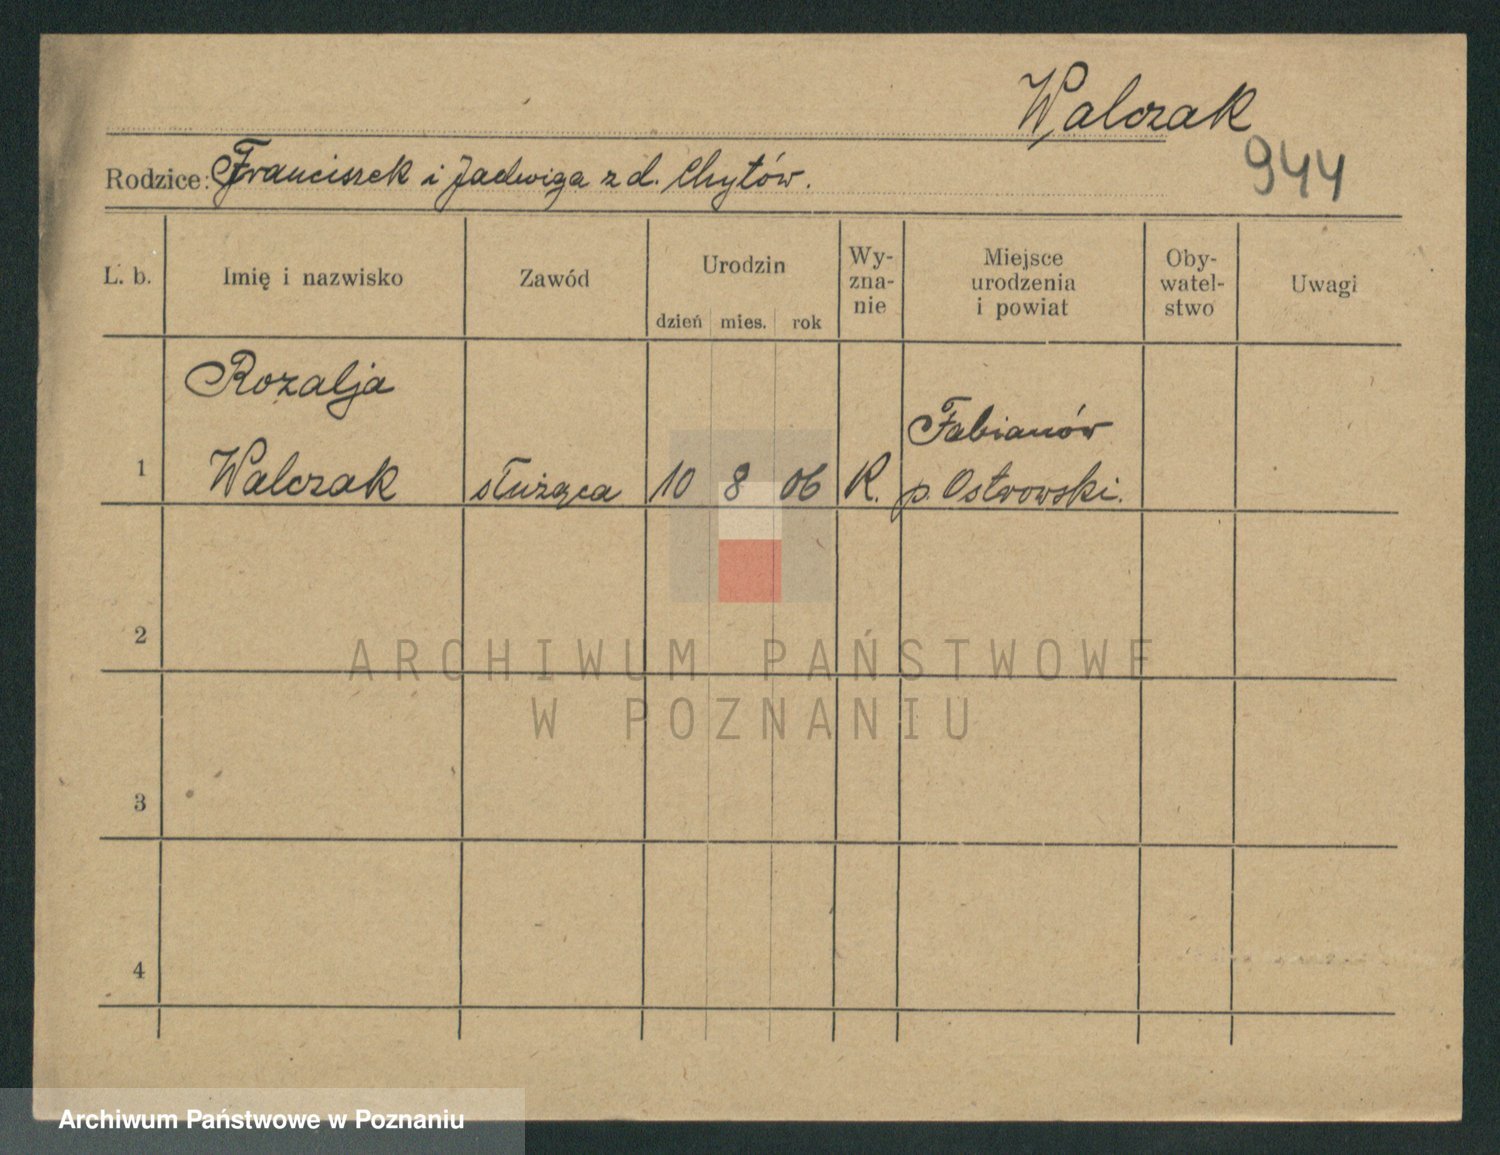 Walczak
944
Rodzice: Franciszek i Jadwiga z d. Chytów.
L. b. Imię i nazwisko Zawód Urodzin dzień mies. rok Wy-zna-nie Miejsce urodzenia i powiat Oby-watel-stwo Uwagi
Rozalja
Fabianów
1 Walczak służąca 10 8 06 K. p. Ostrowski.
2
ARCHIWUM PAŃSTWOWE
W POZNANIU
3
4
Archiwum Państwowe w Poznaniu